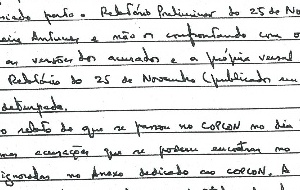 ciado parto. Relatório Preliminar do 25 de No
Antunes e não os confrontando com o
as versões dos acusados e a própria versal
Relatório do 25 de Novembro (publicado em
deturpada.
o relato do que se passou no COPCON no dia
mas acusações que se podem encontrar no
ignoradas no Anexo dedicado ao COPCON. A